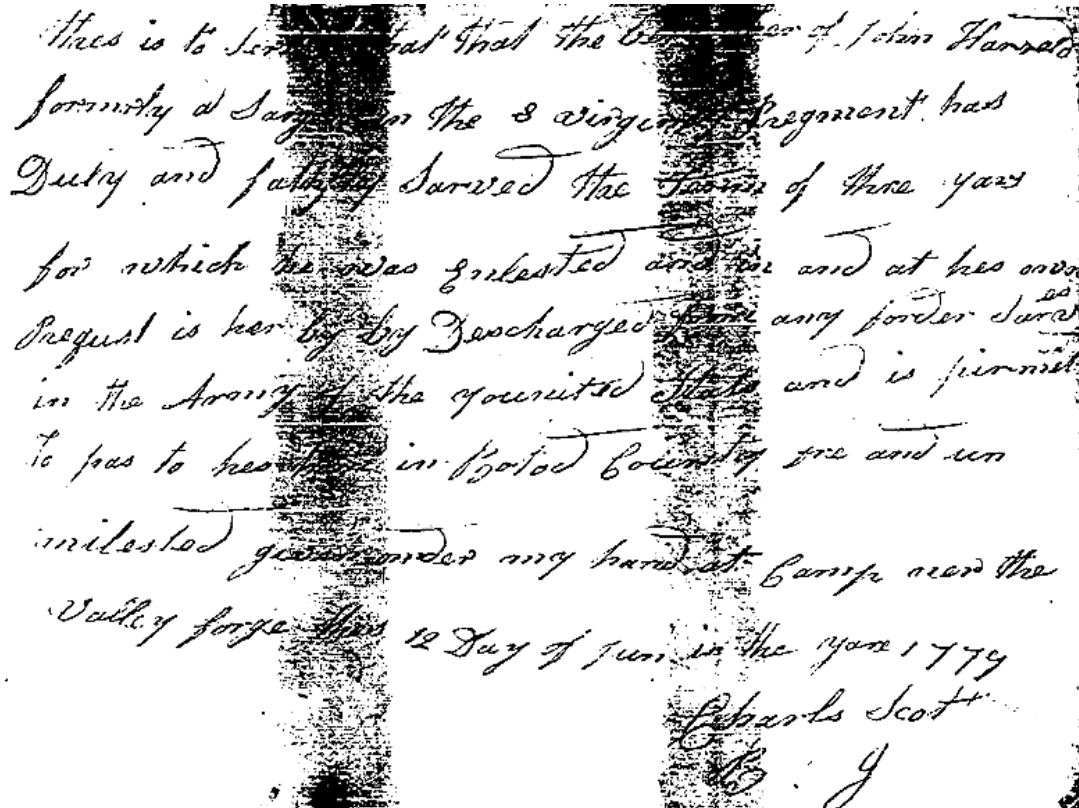 thes is to that that the of John Harrald
formerly a in the 8 virginia Regment has
Duly and sarved the Term of thre yars
for which he was Enlested and in and at hes own
Requst is her by by Descharged from any forder Sarves
in the Army of the younited Stats and is pirmit
To pas to hes in County fre and un
milested given onder my hand at Camp near the
Valley forge thes 12 Day of jun in the yare 1779
Charls Scott
B . G